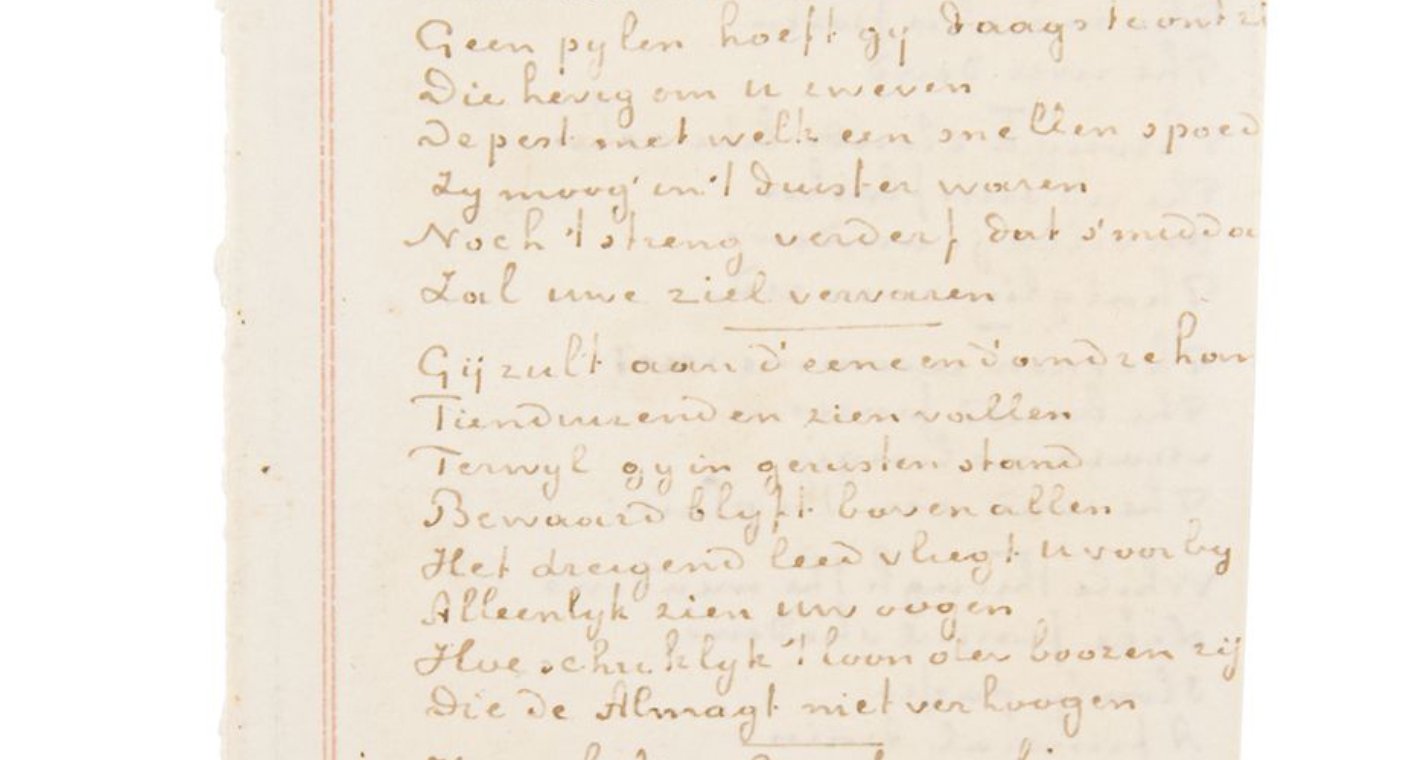 Geen pylen hoeft gy daags te ontzi
Die hevig om u zweven
De pest met welk een snellen spoed
Zy moog' in 't duister waren
Noch 't streng verderf dat s'midda
Zal uwe ziel vervaren
Gij zult aan d' eene en d' andre han
Tienduizenden zien vallen
Terwyl gy in gerusten stand
Bewaard blyft boven allen
Het dreigend leed vliegt u voorby
Alleenlyk zien uw oogen
Hoe schriklyk 't loon der boozen zij
Die de Almagt niet verhoogen